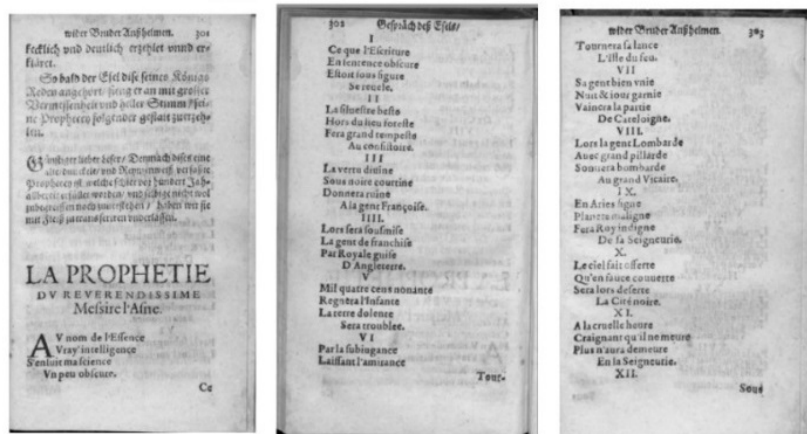 wider Bruder Anßhelmen. 301
kecklich vnd deutlich erzehlet vnnd er-
kläret.
So bald der Esel dise seines Königs
Reden angehört, fieng er an mit grosser
Vermessenheit vnd heller Stimm / sei-
ne Prophecey folgender gestalt zuerzeh-
len.
Günstiger lieber Leser / Demnach dises eine
alte vnd verfaßte
Prophecey ist, welche vor hundert Jah-
erfüllet worden / vnd selbige nicht wol
noch zuuerstehen / haben wir sie
mit Fleiß zu transferiren vnderlassen.
LA PROPHETIE
DV REVERENDISSIME
Messire l'Asne.
AV nom de l'Essence
Vray' intelligence
S'ensuit ma science
Vn peu obscure.
Ce
302 Gespräch deß Esels/
I
Ce que l'Escriture
En sentence obscure
Estoit sous figure
Se reuele.
II
La siluestre beste
Hors du lieu foreste
Fera grand tempeste
Au consistoire.
III
La vertu diuine
Sous noire courtine
Donnera ruine
A la gent Françoise.
IIII.
Lors sera sousmise
La gent de franchise
Par Royale guise
D'Angleterre.
V
Mil quatre cens nonante
Regnera l'Infante
La terre dolente
Sera troublee.
VI
Par la subiugance
Laissant l'amirance
Tour-
wider Bruder Anßhelmen. 303
Tournera sa lance
L'Isle du feu.
VII
Sa gent bien vnie
Nuit & iour garnie
Vaincra la partie
De Cateloigne.
VIII.
Lors la gent Lombarde
Auec grand pillarde
Sonnera bombarde
Au grand Vicaire.
IX.
En Aries signe
Planete maligne
Fera Roy indigne
De sa Seigneurie.
X.
Le ciel fait offerte
Qu'en sauce couuerte
Sera lors deserte
La Cité noire.
XI.
A la cruelle heure
Craignant qu'il ne meure
Plus n'aura demeure
En la Seigneurie.
XII.
Sous